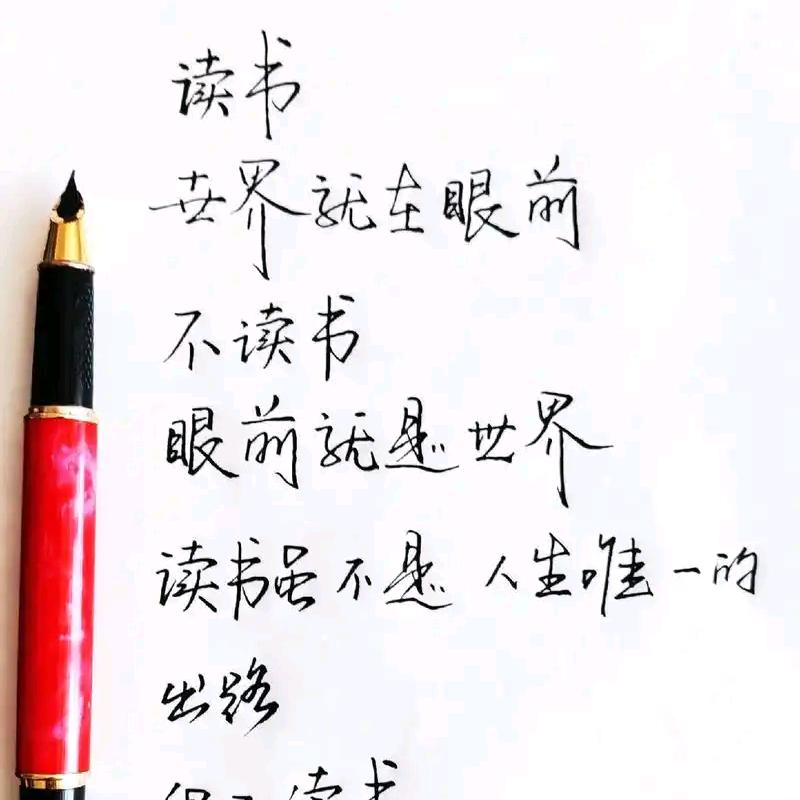 读书
世界就在眼前
不读书
眼前就是世界
读书虽不是人生唯一的
出路